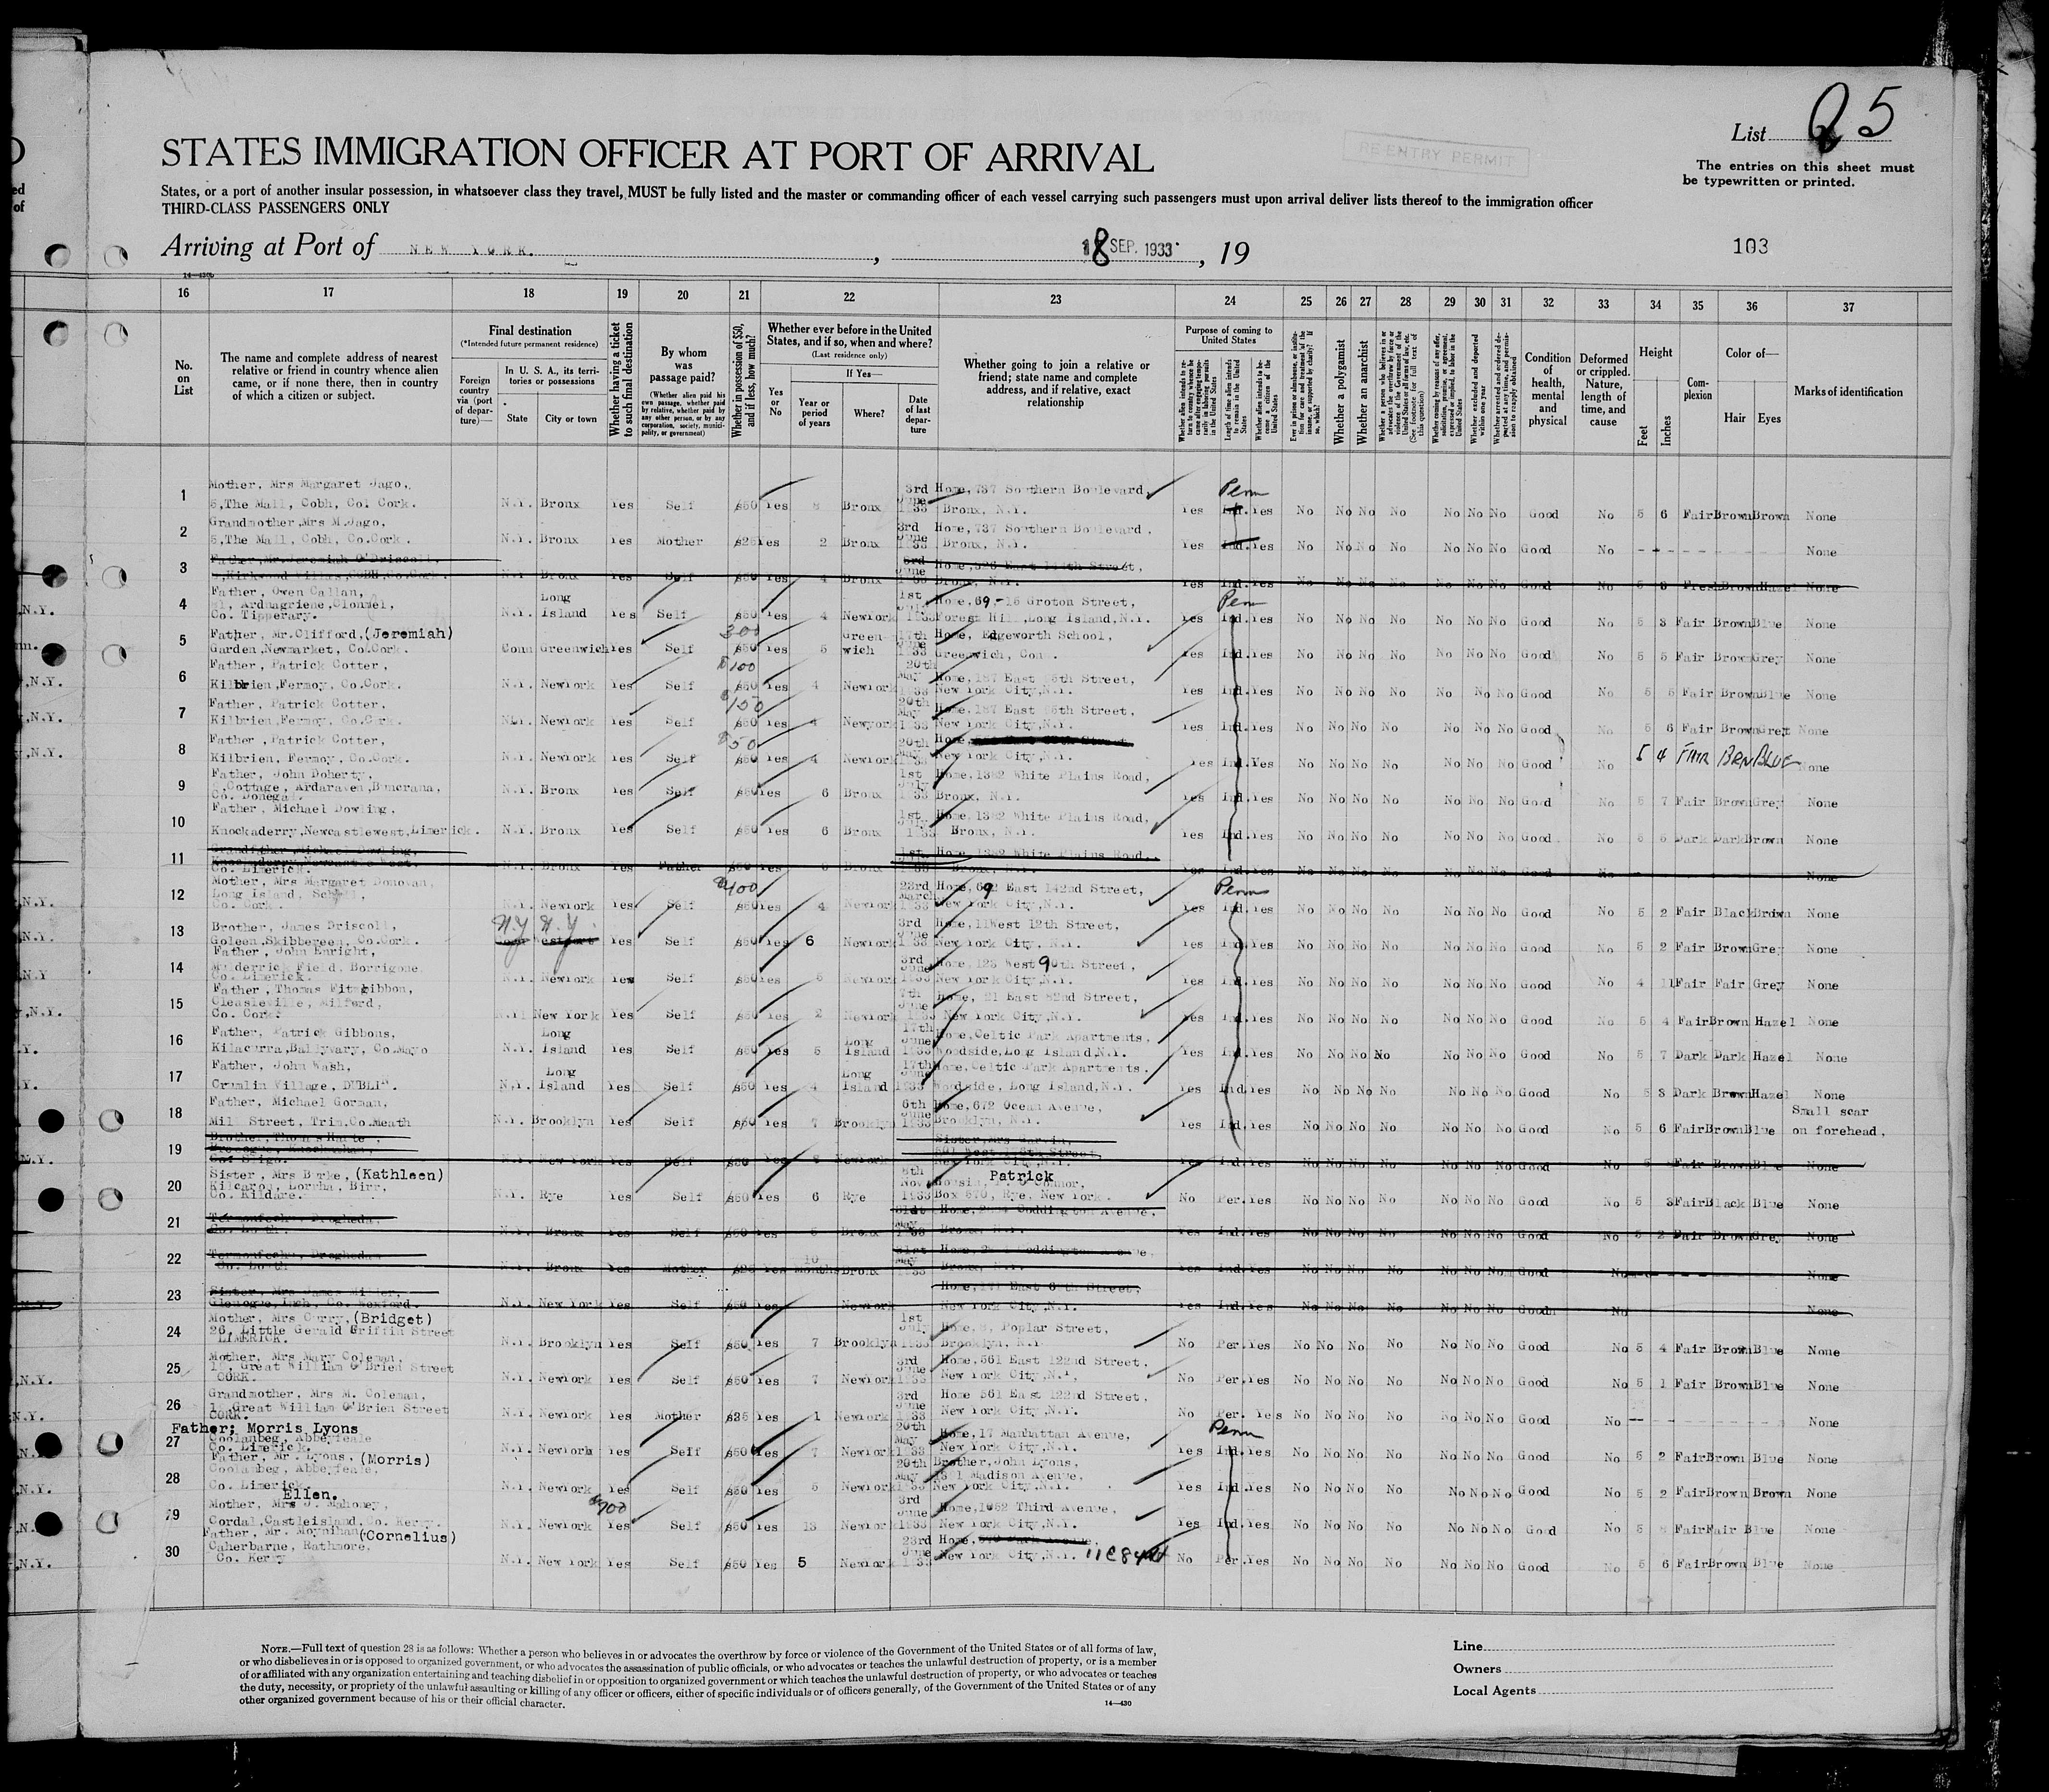 25
List
The entries on this sheet must
be typewritten or printed.
RE-ENTRY PERMIT
STATES IMMIGRATION OFFICER AT PORT OF ARRIVAL
States, or a port of another insular possession, in whatsoever class they travel, MUST be fully listed and the master or commanding officer of each vessel carrying such passengers must upon arrival deliver lists thereof to the immigration officer
THIRD-CLASS PASSENGERS ONLY
Arriving at Port of NEW YORK. , 18 SEP. 1933 , 19
103
16 17 18 19 20 21 22 23 24 25 26 27 28 29 30 31 32 33 34 35 36 37
No. on List
The name and complete address of nearest relative or friend in country whence alien came, or if none there, then in country of which a citizen or subject.
Final destination
(*Intended future permanent residence)
Foreign country via (port of departure)—
In U. S. A., its territories or possessions
State
City or town
Whether having a ticket to such final destination
By whom was passage paid?
(Whether alien paid his own passage, whether paid by relative, whether paid by any other person, or by any corporation, society, municipality, or government)
Whether in possession of $50, and if less, how much?
Whether ever before in the United States, and if so, when and where?
(Last residence only)
Yes or No
If Yes—
Year or period of years
Where?
Date of last departure
Whether going to join a relative or friend; state name and complete address, and if relative, exact relationship
Purpose of coming to United States
Length of time alien intends to remain in the United States
Whether alien intends to become a citizen of the United States
Whether a polygamist
Whether an anarchist
Condition of health, mental and physical
Deformed or crippled. Nature, length of time, and cause
Height
Feet
Inches
Complexion
Color of—
Hair
Eyes
Marks of identification
1 Mother, Mrs Margaret Jago, 5,The Mall, Cobh, Co. Cork. N.Y. Bronx Yes Self $50 Yes 8 Bronx 3rd June 1933 Home, 737 Southern Boulevard, Bronx, N.Y. Yes Perm Ind. Yes No No No No No No No Good No 5 6 Fair Brown Brown None
2 Grandmother,Mrs M.Jago, 5,The Mall, Cobh, Co.Cork. N.Y. Bronx Yes Mother $25 Yes 2 Bronx 3rd June 1933 Home, 737 Southern Boulevard. Bronx, N.Y. Yes Ind. Yes No No No No No No No Good No None
3 Father,Mr.Jeremiah O'Driscoll, N.Y. Bronx Yes Self $50 Yes 4 Bronx Bronx, N.Y. Yes Ind. Yes No No No No No No No Good No 5 8 Fresh Brown Hazel None
4 Father, Owen Callan, Clonmel, Co. Tipperary. N.Y. Long Island Yes Self $50 Yes 4 NewYork 1st July 1933 Home, 69-15 Groton Street, Forest Hill, Long Island, N.Y. Perm Ind. Yes No No No No No No No Good No 5 3 Fair Brown Blue None
5 Father, Mr.Clifford,(Jeremiah) Garden,Newmarket, Co.Cork. Conn Greenwich Yes Self 300 $50 Yes 5 Greenwich 17th June 1933 Home, Edgeworth School, Greenwich, Conn. Yes Ind. Yes No No No No No No No Good No 5 5 Fair Brown Grey None
6 Father, Patrick Cotter, Kilbrien,Fermoy, Co.Cork. N.Y. NewYork Yes Self $100 $50 Yes 4 NewYork 20th May 1933 Home, 187 East 95th Street, New York City,N.Y. Yes Ind. Yes No No No No No No No Good No 5 5 Fair Brown Blue None
7 Father, Patrick Cotter, Kilbrien,Fermoy, Co.Cork. N.Y. NewYork Yes Self $100 $50 Yes 4 Newyork 20th May 1933 Home, 187 East 95th Street, New York City,N.Y. Yes Ind. Yes No No No No No No No Good No 5 6 Fair Brown Grey None
8 Father, Patrick Cotter, Kilbrien, Fermoy, Co.Cork. N.Y. NewYork Yes Self $50 $50 Yes 4 NewYork 20th May 1933 Home, New York City,N.Y. Yes Ind. Yes No No No No No No No Good No 5 4 FAIR BRN BLUE None
9 Father, John Doherty, Cottage, Ardaraven, Buncrana, Co. Donegal. N.Y. Bronx Yes Self $50 Yes 6 Bronx 1st July 1933 Home, 1382 White Plains Road, Bronx, N.Y. Yes Ind. Yes No No No No No No No Good No 5 7 Fair Brown Grey None
10 Father, Michael Dowling, Knockaderry,Newcastlewest,Limerick. N.Y. Bronx Yes Self $50 Yes 6 Bronx 1st July 1933 Home, 1382 White Plains Road, Bronx, N.Y. Yes Ind. Yes No No No No No No No Good No 5 5 Dark Dark Brown None
11 Grandfather,Michael Dowling, Knockaderry,Newcastle West, Co. Limerick. N.Y. Bronx Yes Father $50 Yes 6 Bronx 1st Home, 1382 White Plains Road, Bronx, N.Y. Yes Ind. Yes No No No No No No No Good No None
12 Mother, Mrs Margaret Donovan, Long Island, Schull, Co. Cork. N.Y. NewYork Yes Self $400 $50 Yes 4 NewYork 23rd March 1933 Home, 692 East 142nd Street, New York City,N.Y. Yes Perm Ind. Yes No No No No No No No Good No 5 2 Fair Black Brown None
13 Brother, James Driscoll, Goleen,Skibbereen, Co.Cork. N.Y. N.Y. Yes Self $50 Yes 6 NewYork 3rd June 1933 Home, 11West 12th Street, New York City, N.Y. Yes Ind. Yes No No No No No No No Good No 5 2 Fair Brown Grey None
14 Father, John Enright, Field, Borrigone, Co. Limerick. N.Y. NewYork Yes Self $50 Yes 5 NewYork 3rd June 1933 Home, 123 West 90th Street, New York City,N.Y. Yes Ind. Yes No No No No No No No Good No 4 11 Fair Fair Grey None
15 Father, Thomas Fitzgibbon, Milford, Co. Cork. N.Y. New York Yes Self $50 Yes 2 NewYork 7th June 1933 Home, 21 East 82nd Street, New York City,N.Y. Yes Ind. Yes No No No No No No No Good No 5 4 Fair Brown Hazel None
16 Father, Patrick Gibbons, Kilacurra,Ballyvary, Co.Mayo N.Y. Long Island Yes Self $50 Yes 5 Long Island 17th June 1933 Home,Celtic Park Apartments, Woodside,Long Island,N.Y. Yes Ind. Yes No No No No No No No Good No 5 7 Dark Dark Hazel None
17 Father, John Wash, Crumlin Village, DUBLIN. N.Y. Long Island Yes Self $50 Yes 4 Long Island 17th June 1933 Home, Celtic Park Apartments. Woodside, Long Island,N.Y. Yes Ind. Yes No No No No No No No Good No 5 3 Dark Brown Hazel None
18 Father, Michael Gorman, Mill Street, Trim,Co.Meath N.Y. Brooklyn Yes Self $50 Yes 7 Brooklyn 6th June 1933 Home,672 Ocean Avenue, Brooklyn, N.Y. Yes Ind. Yes No No No No No No No Good No 5 6 Fair Brown Blue Small scar on forehead.
19 Brother,Thomas Harte, Co. Sligo. N.Y. New York Yes Self $50 Yes NewYork Sister,Mrs New York City,N.Y. Yes Ind. Yes No No No No No No No Good No 5 Fair Brown Blue None
20 Sister, Mrs Burke, (Kathleen) Lorrha, Birr, Co. Kildare. N.Y. Rye Yes Self $50 Yes 6 Rye 8th Nov 1933 Cousin, Patrick Connor, Box 570, Rye, New York. No Per. Yes No No No No No No No Good No 5 3 Fair Black Blue None
21 Termonfechin, Drogheda, Co. Louth. N.Y. Bronx Yes Self $50 Yes 5 Bronx 31st May 1933 Home, Coddington Avenue, Bronx, N.Y. Yes Ind. Yes No No No No No No No Good No 5 2 Fair Brown Grey None
22 Termonfechin, Drogheda, Co. Louth N.Y. Bronx Yes Mother $25 Yes 10 months Bronx 31st May 1933 Home, Coddington Avenue, Bronx, N.Y. Yes Ind. Yes No No No No No No No Good No None
23 Sister, Mrs James Miller, Co. Wexford. N.Y. New York Yes Self $50 Yes NewYork Home, 171 East Street, New York City,N.Y. Yes Ind. Yes No No No No No No No Good No None
24 Mother, Mrs Curry,(Bridget) 26, Little Gerald Griffin Street LIMERICK. N.Y. Brooklyn Yes Self $50 Yes 7 Brooklyn 1st July 1933 Home, Poplar Street, Brooklyn, N.Y. No Per. Yes No No No No No No No Good No 5 4 Fair Brown Blue None
25 Mother, Mrs Mary Coleman, Great William O'Brien Street CORK. N.Y. NewYork Yes Self $50 Yes 7 NewYork 3rd June 1933 Home,561 East 122nd Street, New York City,N.Y, No Per. Yes No No No No No No No Good No 5 1 Fair Brown Blue None
26 Grandmother, Mrs M. Coleman, Great William O'Brien Street CORK. N.Y. NewYork Yes Mother $25 Yes 1 NewYork 3rd June 1933 Home 561 East 122nd Street, New York City,N.Y. No Per. Yes No No No No No No No Good No None
27 Father; Morris Lyons Coolanbeg, Abbeyfeale Co. Limerick. N.Y. NewYork Yes Self $50 Yes 7 NewYork 20th May 1933 Home, 17 Manhattan Avenue, New York City,N.Y. Yes Perm Ind. Yes No No No No No No No Good No 5 2 Fair Brown Blue None
28 Father, Mr. Lyons, (Morris) Coolanbeg, Abbeyfeale, Co. Limerick. N.Y. NewYork Yes Self $50 Yes 5 NewYork 20th May 1933 Brother, John Lyons, Madison Avenue, New York City,N.Y. Yes Ind. Yes No No No No No No No Good No 5 2 Fair Brown Brown None
29 Ellen. Mother, Mrs J. Mahoney, Cordal,Castleisland, Co. Kerry. N.Y. NewYork Yes Self $700 $50 Yes 13 NewYork 3rd June 1933 Home,1652 Third Avenue, New York City,N.Y. Yes Ind. Yes No No No No No No No Good No 5 Fair Fair Blue None
30 Father, Mr. Moynihan(Cornelius) Caherbarne, Rathmore, Co. Kerry N.Y. New York Yes Self $50 Yes 5 NewYork 23rd June 1933 Home, New York City,N.Y. 11 E 84th No Per. Yes No No No No No No No Good No 5 6 Fair Brown Blue None
NOTE.—Full text of question 28 is as follows: Whether a person who believes in or advocates the overthrow by force or violence of the Government of the United States or of all forms of law,
or who disbelieves in or is opposed to organized government, or who advocates the assassination of public officials, or who advocates or teaches the unlawful destruction of property, or is a member
of or affiliated with any organization entertaining and teaching disbelief in or opposition to organized government or which teaches the unlawful destruction of property, or who advocates or teaches
the duty, necessity, or propriety of the unlawful assaulting or killing of any officer or officers, either of specific individuals or of officers generally, of the Government of the United States or of any
other organized government because of his or their official character.
14—430
Line
Owners
Local Agents